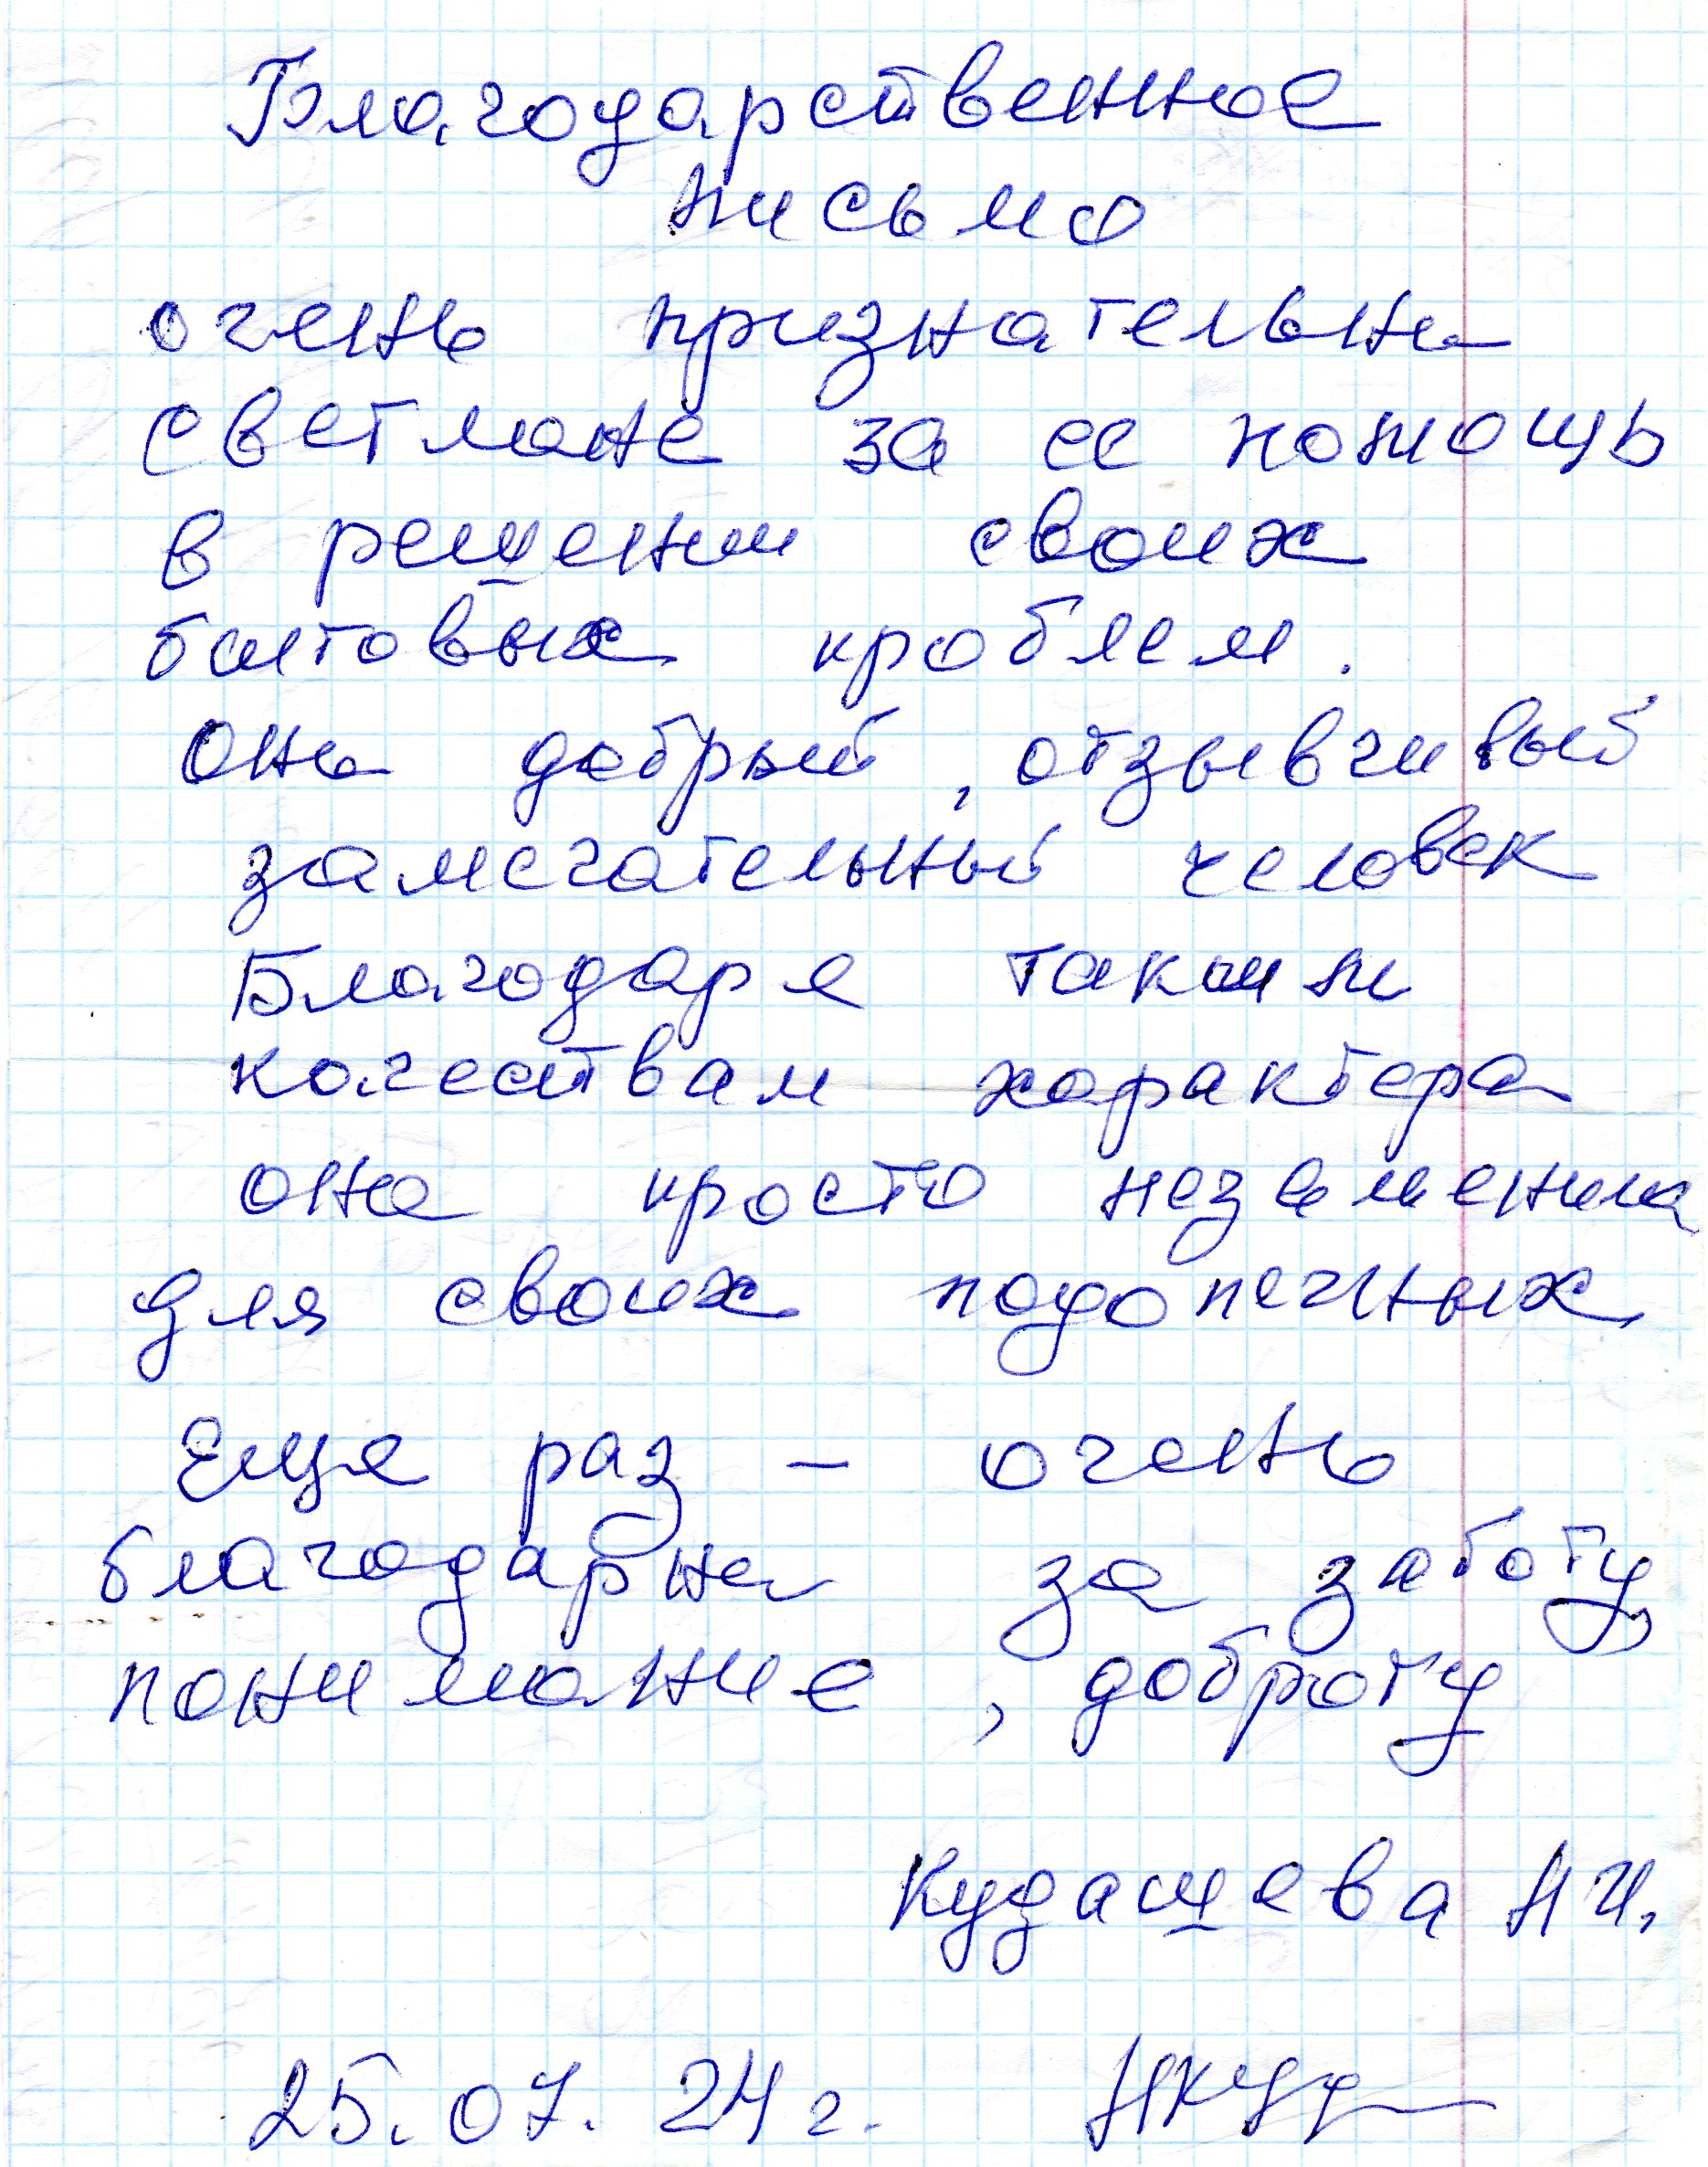 Благодарственное
письмо
очень признательна
Светлане за ее помощь
в решении своих
бытовых проблем.
Она добрый, отзывчивый
замечательный человек
Благодаря таким
качествам характера
она просто незаменима
для своих подопечных
Еще раз - очень
благодарна за заботу,
понимание, доброту
Кудашева Н И.
25.07.24 г.